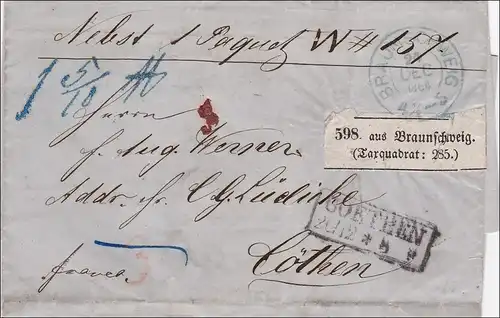 Nebst 1 Paquet W # 157.
1 5/10
BRAUNSCHWEIG
DEC
Herrn
598. aus Braunschweig.
(Taxquadrat: 285.)
f. Aug. Werner.
Addr. C. G. Lüdicke
COETHEN
Cöthen
franco.